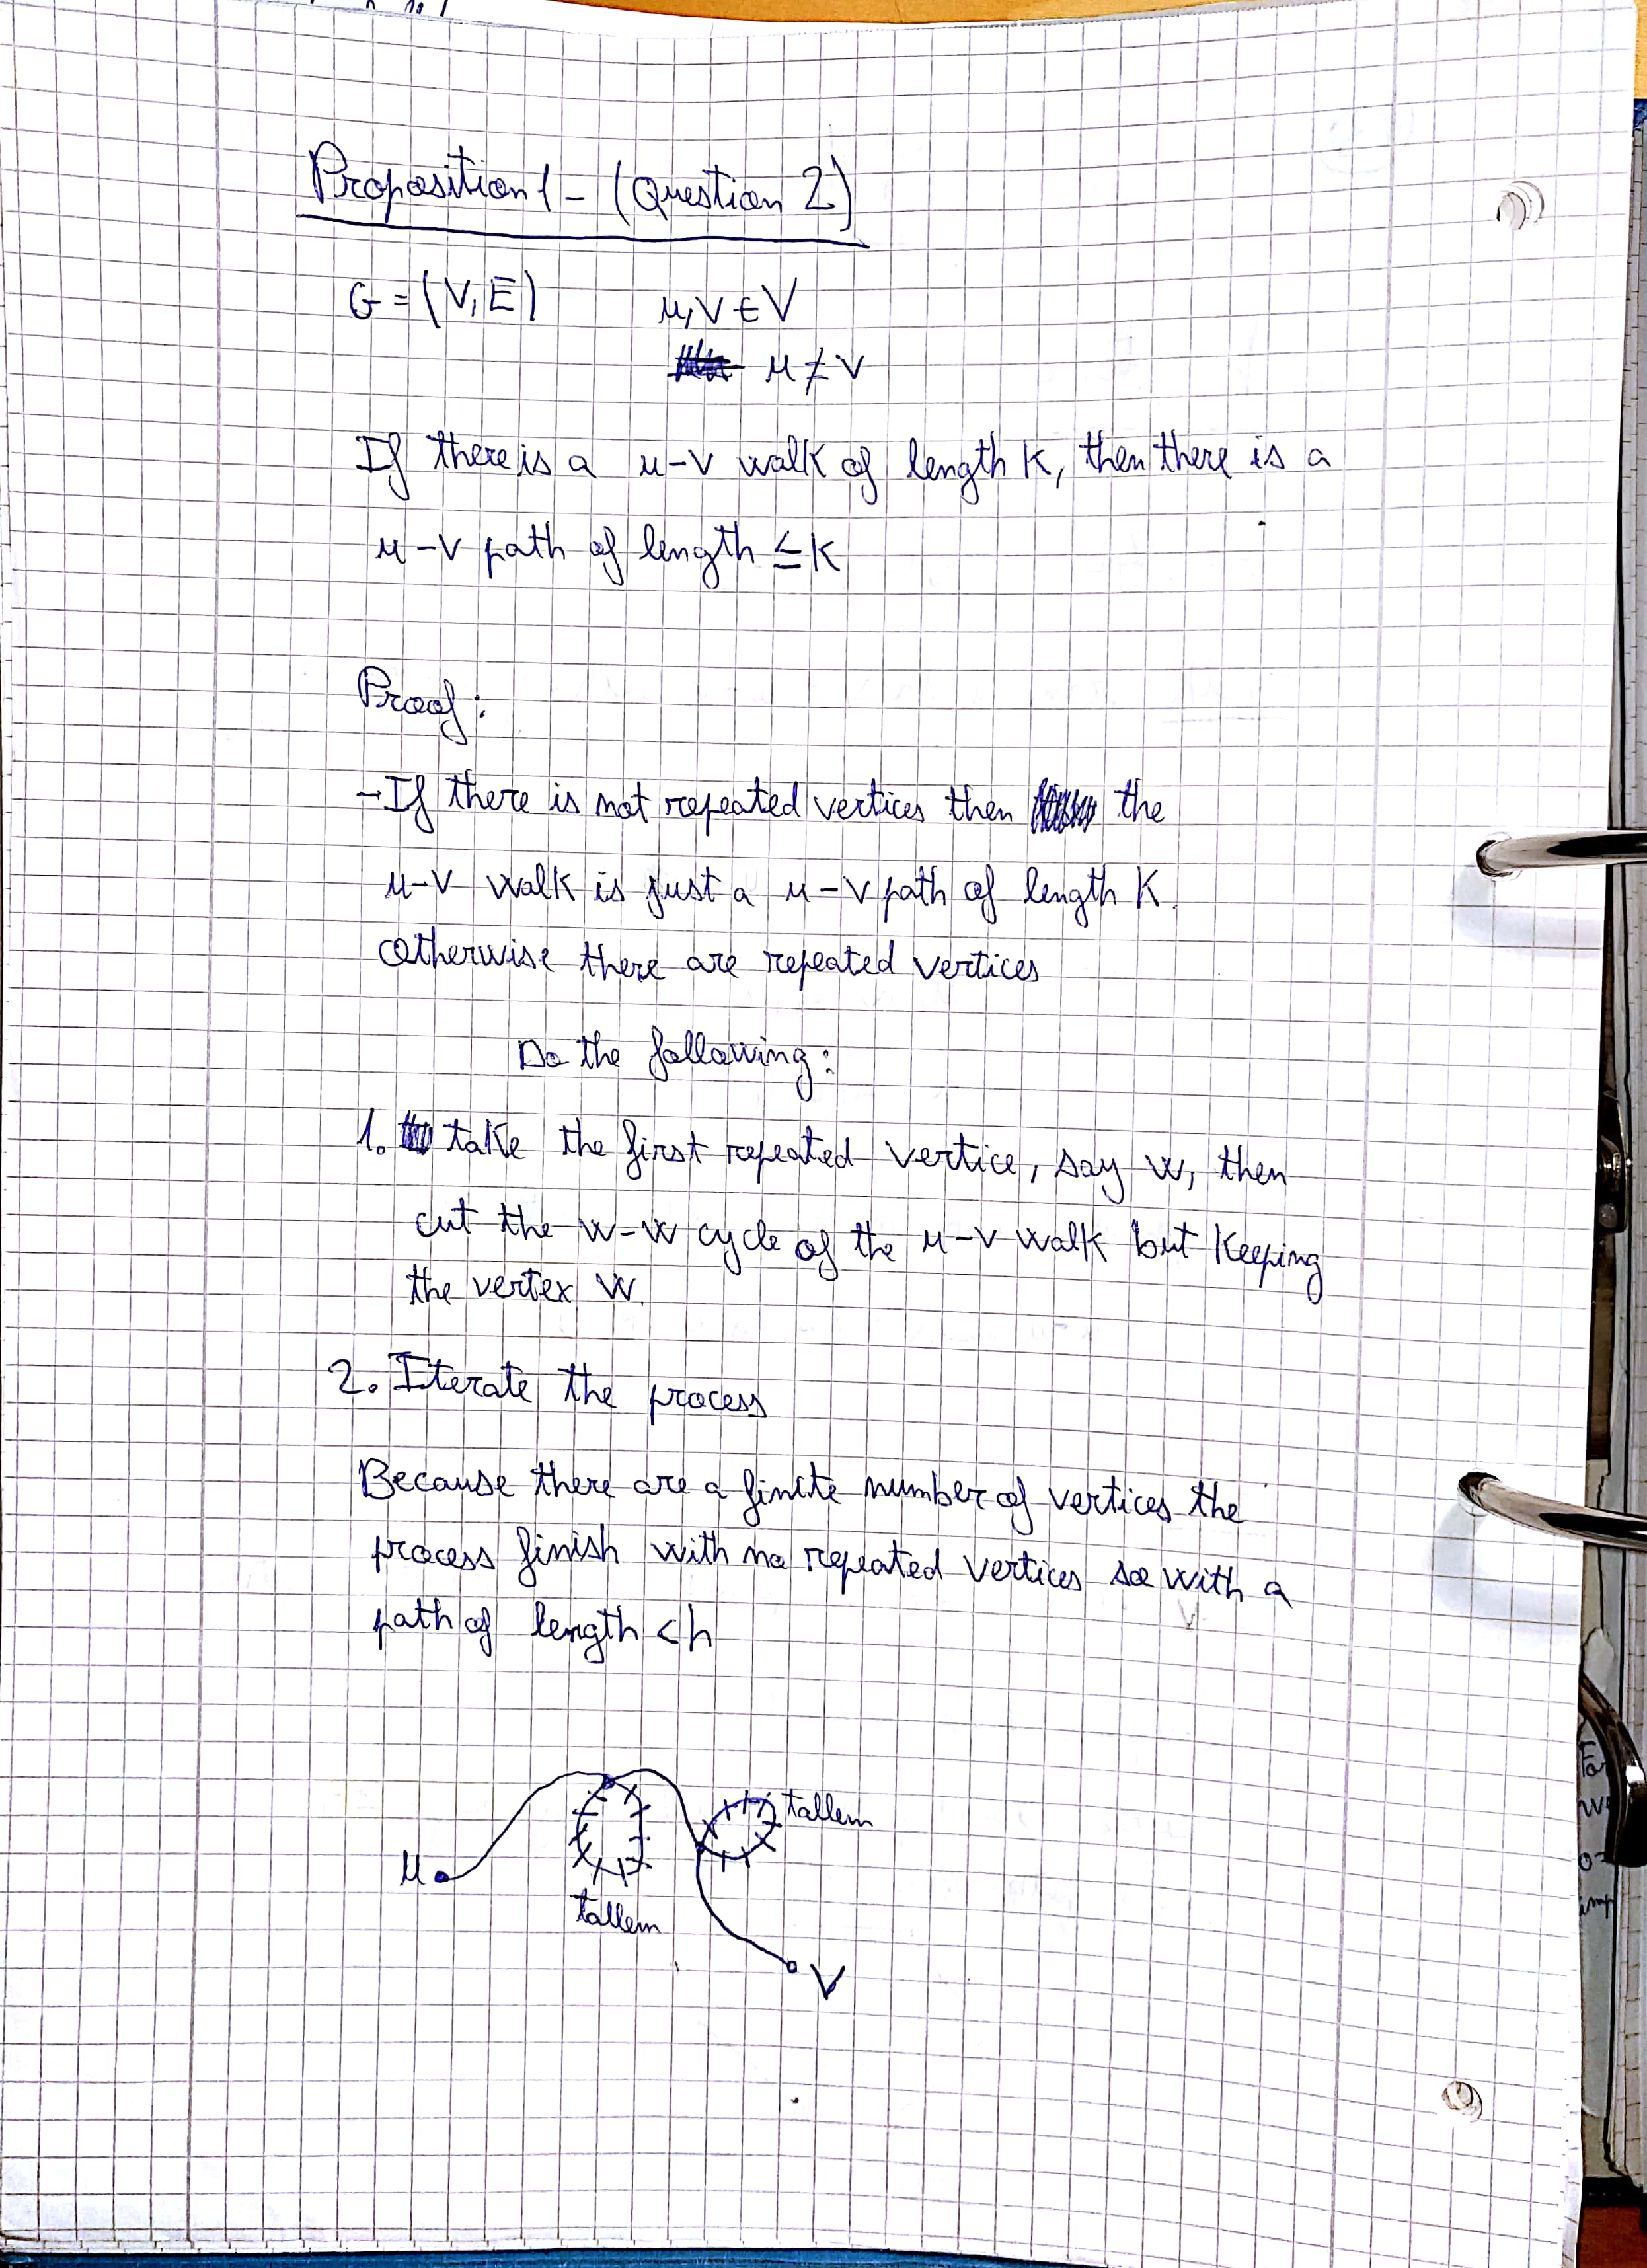 Proposition 1 - (Question 2)
G = (V, E) u, v ∈ V
u ≠ v
If there is a u-v walk of length k, then there is a
u-v path of length ≤ k
Proof:
- If there is not repeated vertices then the
u-v walk is just a u-v path of length k.
otherwise there are repeated vertices
Do the following:
1. take the first repeated vertice, say w, then
cut the w-w cycle of the u-v walk but keeping
the vertex w.
2. Iterate the process
Because there are a finite number of vertices the
process finish with no repeated vertices so with a
path of length < h
u
tallem
tallem
v